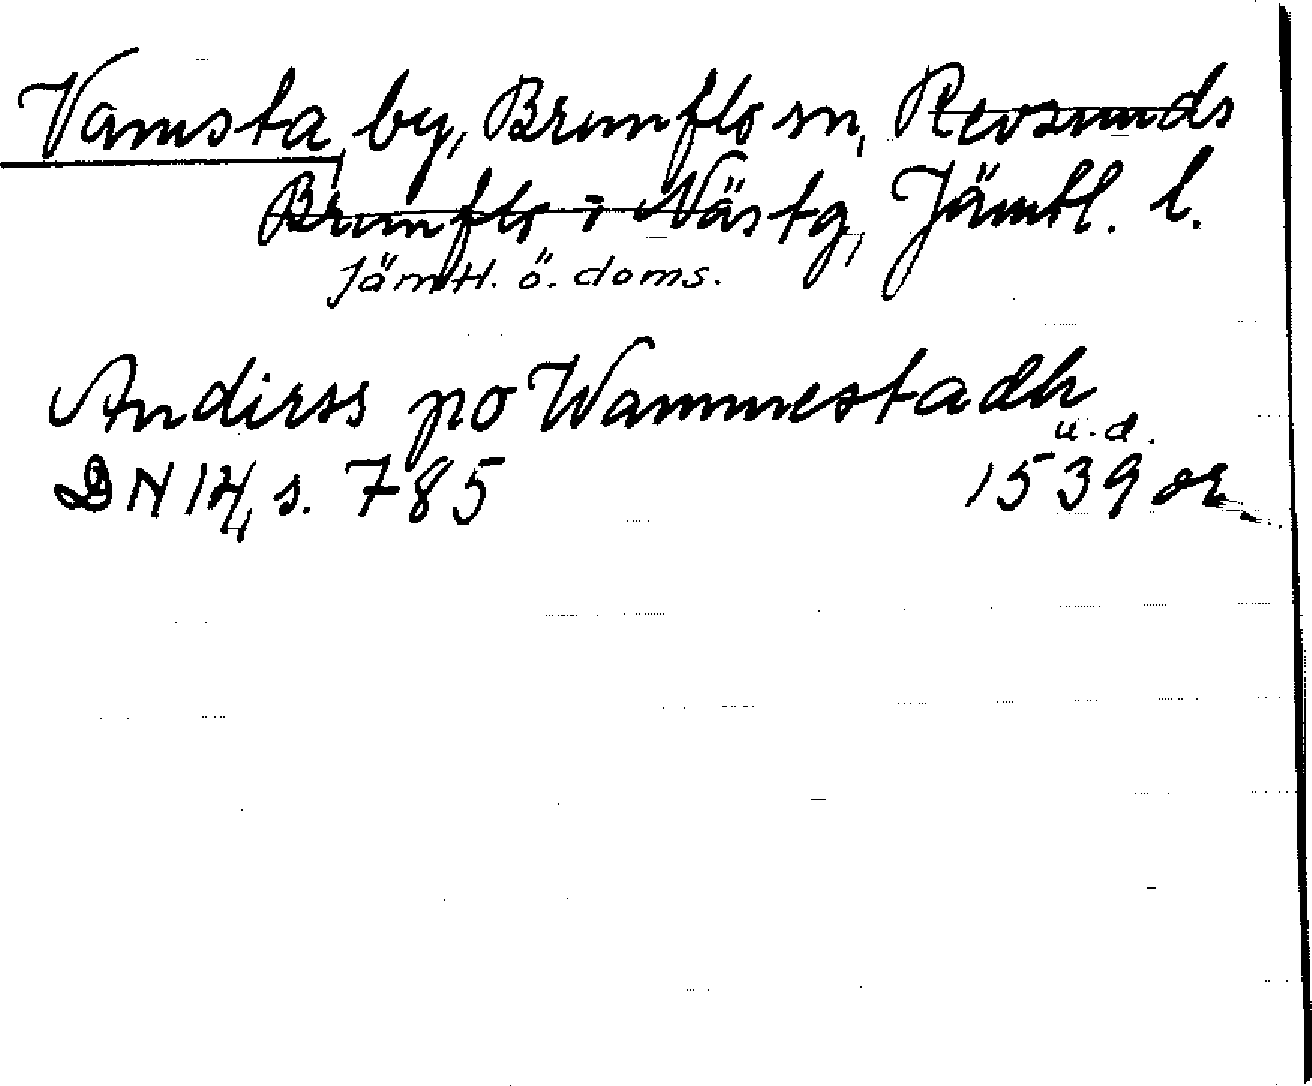 Vamsta by, Brunflo sn, Revsunds
Brunflo o Näs tg, Jämtl. l.
Jämtl. ö. doms.
Andirss po Wammestadh
u.d.
DN 14, s. 785 1539 or.